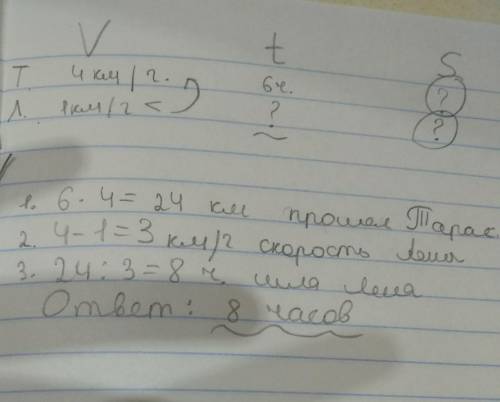 V t S
Т. 4 км/г. 6 ч. ?
Л. 1 км/г < ? ?
1. 6 · 4 = 24 км прошел Тарас
2. 4 - 1 = 3 км/г скорость Лены
3. 24 : 3 = 8 ч. шла Лена
Ответ: 8 часов